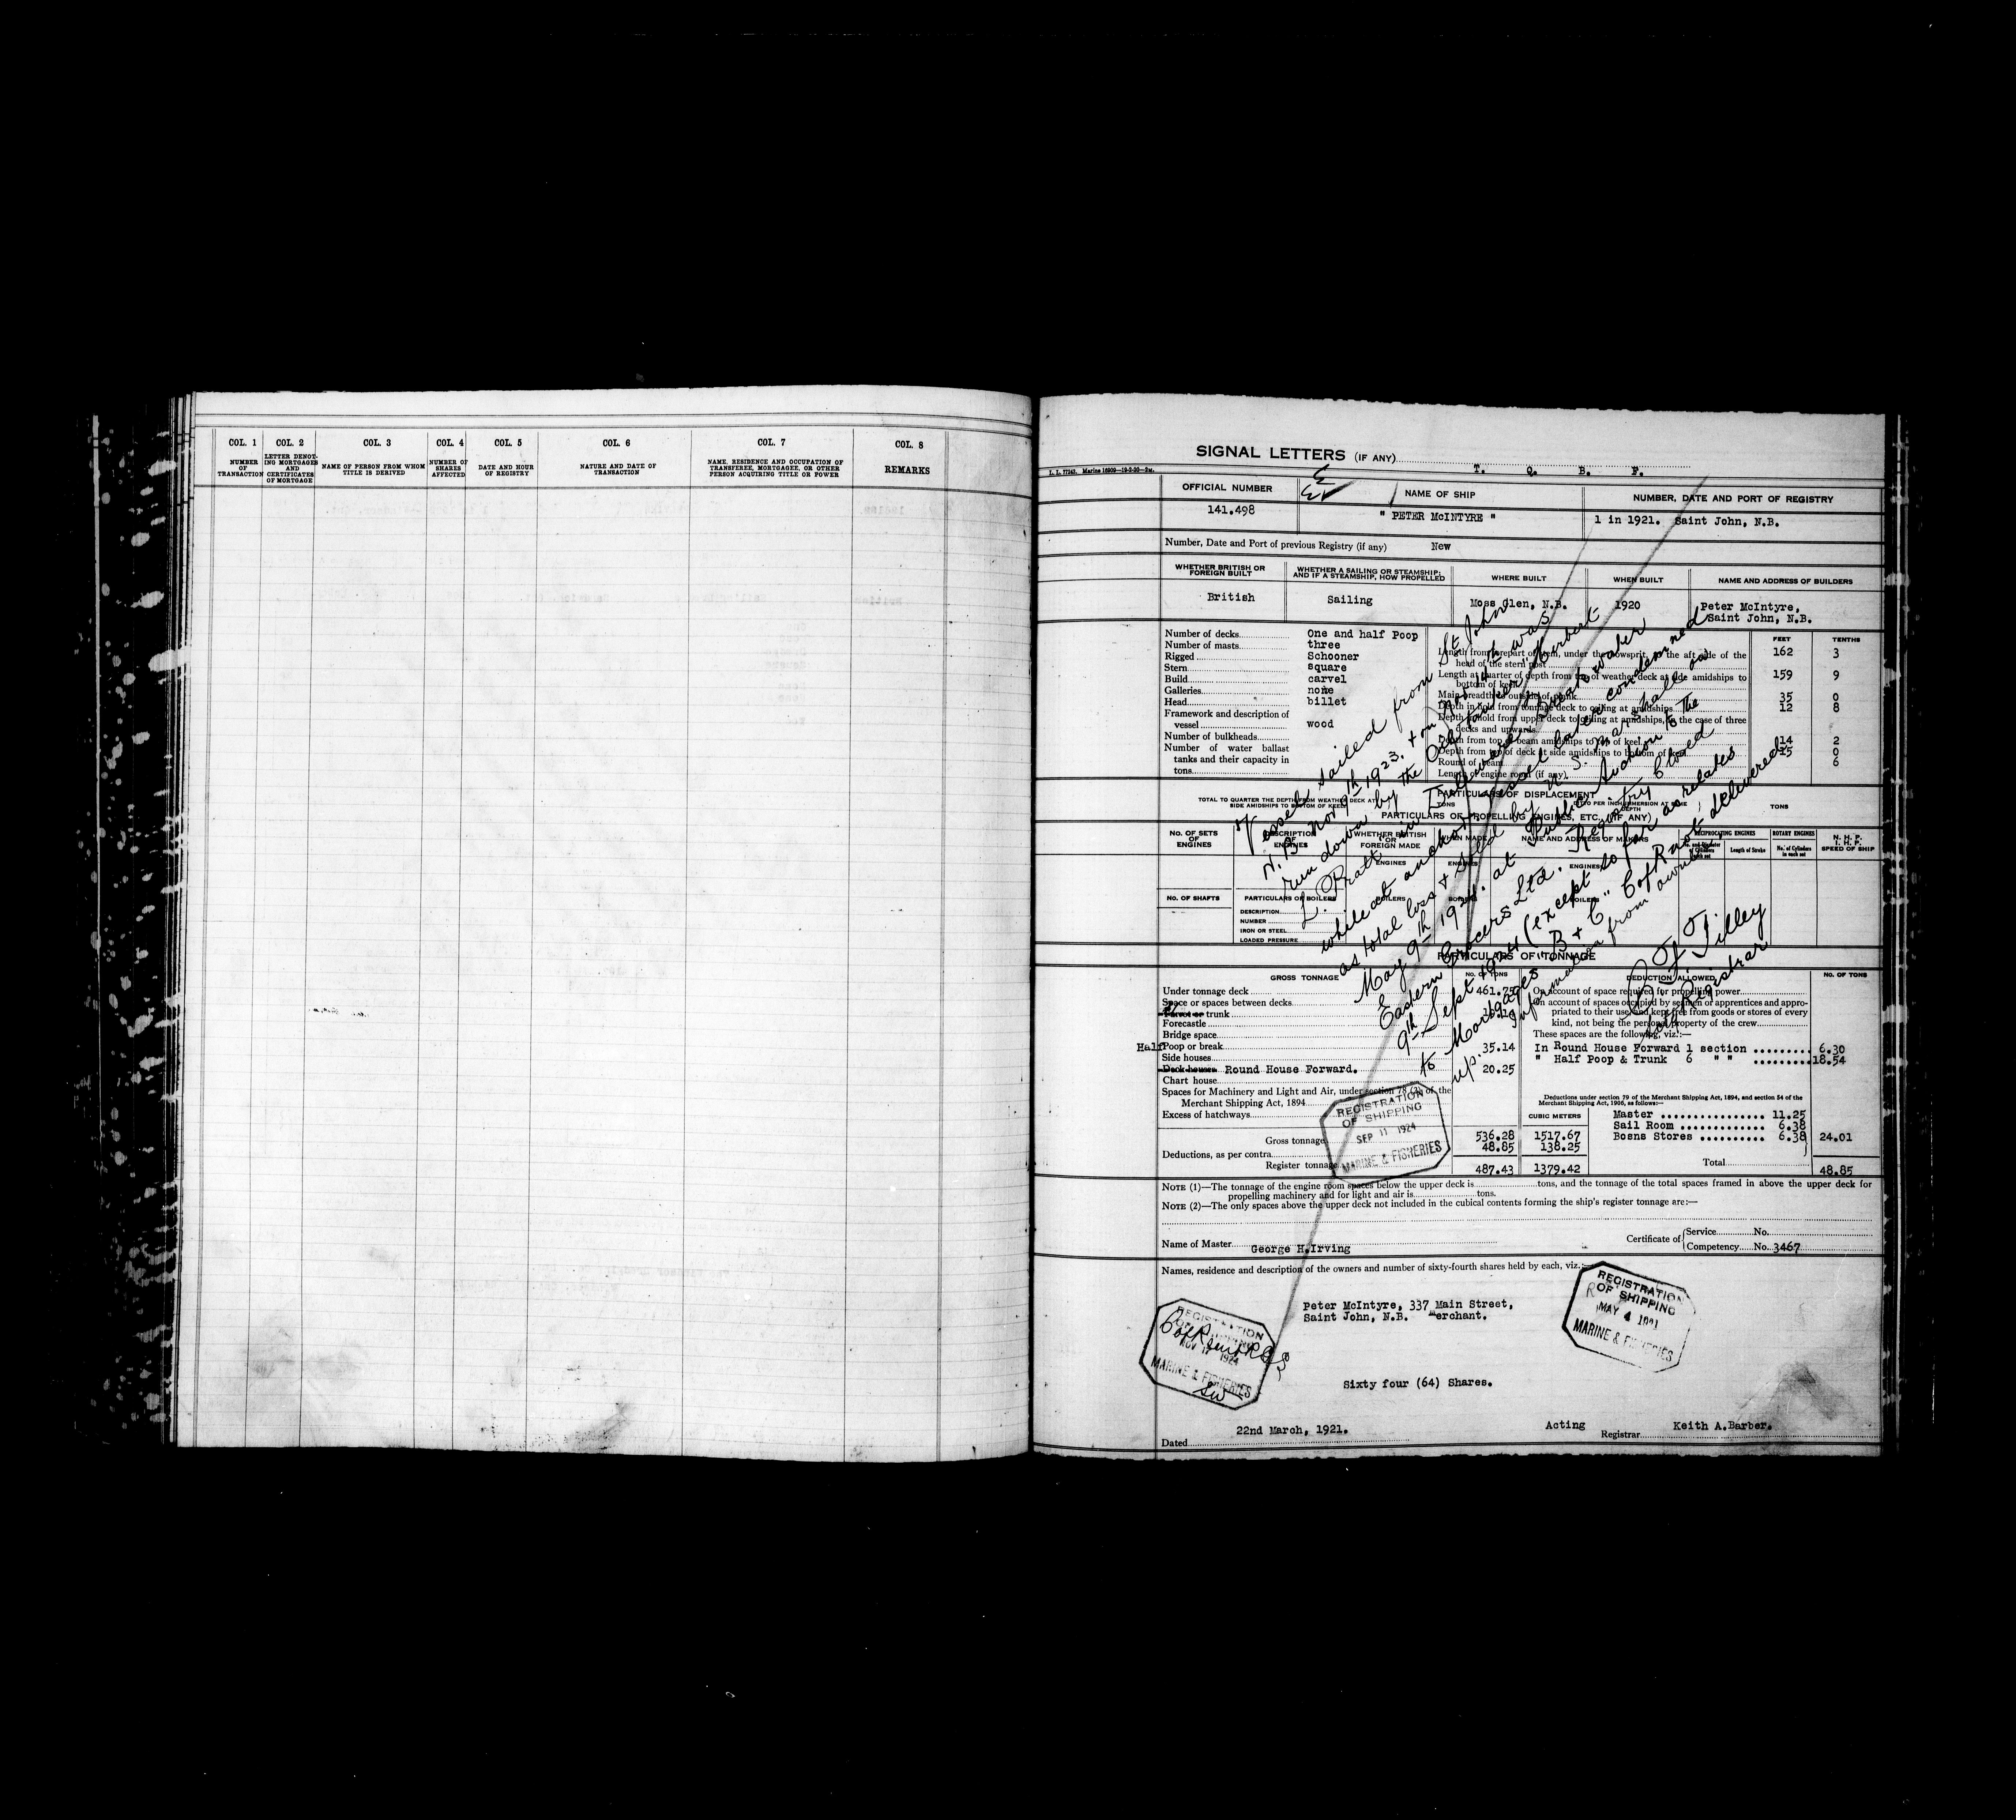 COL. 1
NUMBER OF TRANSACTION
COL. 2
LETTER DENOTING MORTGAGES AND CERTIFICATES OF MORTGAGE
COL. 3
NAME OF PERSON FROM WHOM TITLE IS DERIVED
COL. 4
NUMBER OF SHARES AFFECTED
COL. 5
DATE AND HOUR OF REGISTRY
COL. 6
NATURE AND DATE OF TRANSACTION
COL. 7
NAME, RESIDENCE AND OCCUPATION OF TRANSFEREE, MORTGAGEE, OR OTHER PERSON ACQUIRING TITLE OR POWER
COL. 8
REMARKS
SIGNAL LETTERS (IF ANY) T. Q. B. F.
OFFICIAL NUMBER
NAME OF SHIP
NUMBER, DATE AND PORT OF REGISTRY
141.498
" PETER McINTYRE "
1 in 1921. Saint John, N.B.
Number, Date and Port of previous Registry (if any) New
WHETHER BRITISH OR FOREIGN BUILT
WHETHER A SAILING OR STEAMSHIP; AND IF A STEAMSHIP, HOW PROPELLED
WHERE BUILT
WHEN BUILT
NAME AND ADDRESS OF BUILDERS
British
Sailing
Moss Glen, N.B.
1920
Peter McIntyre,
Saint John, N.B.
Number of decks One and half Poop
Number of masts three
Rigged Schooner
Stern square
Build carvel
Galleries none
Head billet
Framework and description of vessel wood
Number of bulkheads
Number of water ballast tanks and their capacity in tons
FEET TENTHS
Length from forepart of stem, under the bowsprit, to the aft side of the head of the stern post 162 3
Length at quarter of depth from top of weather deck at side amidships to bottom of keel 159 9
Main breadth to outside of plank 35 0
Depth in hold from tonnage deck to ceiling at amidships 12 8
Depth in hold from upper deck to ceiling at amidships, in the case of three decks and upwards
Depth from top of beam amidships to top of keel 14 2
Depth from top of deck at side amidships to bottom of keel 15 0
Round of beam 6
Length of engine room (if any)
PARTICULARS OF DISPLACEMENT
TOTAL TO QUARTER THE DEPTH FROM WEATHER DECK AT SIDE AMIDSHIPS TO BOTTOM OF KEEL TONS
DITTO PER INCH IMMERSION AT SAME DEPTH TONS
PARTICULARS OF PROPELLING ENGINES, ETC. (IF ANY)
NO. OF SETS OF ENGINES
DESCRIPTION OF ENGINES
WHETHER BRITISH OR FOREIGN MADE
WHEN MADE
NAME AND ADDRESS OF MAKERS
RECIPROCATING ENGINES
Length of Stroke
ROTARY ENGINES
No. of Cylinders in each set
N. H. P.
I. H. P.
SPEED OF SHIP
ENGINES
ENGINES
ENGINES
NO. OF SHAFTS
PARTICULARS OF BOILERS
BOILERS
BOILERS
BOILERS
DESCRIPTION
NUMBER
IRON OR STEEL
LOADED PRESSURE
Vessel sailed from St John
N. B. Nov 9th 1923. & on Nov 14th was
run down by the Oil tanker Herbert
L. Pratt in Delaware Breakwater
while at anchor, vessel later condemned
as total loss & sold by U. S. Marshall on
May 9th 1924. at Public Auction to the
Eastern Grocers Ltd. Registry Closed
9th Sept 1924 (except so far as relates
to Mortgages "B & C" C of R not delivered
up. Information from owner
Actg Registrar
PARTICULARS OF TONNAGE
GROSS TONNAGE
NO. OF TONS
DEDUCTION ALLOWED
NO. OF TONS
Under tonnage deck 461.75
Space or spaces between decks
Turret or trunk
Forecastle
Bridge space
Half Poop or break 35.14
Side houses
Deck houses Round House Forward. 20.25
Chart house
Spaces for Machinery and Light and Air, under section 78 (2) of the Merchant Shipping Act, 1894
Excess of hatchways
CUBIC METERS
Gross tonnage 536.28 1517.67
Deductions, as per contra 48.85 138.25
Register tonnage 487.43 1379.42
On account of space required for propelling power
On account of spaces occupied by seamen or apprentices and appropriated to their use and kept free from goods or stores of every kind, not being the personal property of the crew
These spaces are the following, viz.:—
In Round House Forward 1 section 6.30
" Half Poop & Trunk 6 " " 18.54
Deductions under section 79 of the Merchant Shipping Act, 1894, and section 54 of the Merchant Shipping Act, 1906, as follows:—
Master 11.25
Sail Room 6.38
Bosns Stores 6.38 24.01
Total 48.85
REGISTRATION OF SHIPPING
SEP 11 1924
MARINE & FISHERIES
NOTE (1)—The tonnage of the engine room spaces below the upper deck is tons, and the tonnage of the total spaces framed in above the upper deck for propelling machinery and for light and air is tons.
NOTE (2)—The only spaces above the upper deck not included in the cubical contents forming the ship's register tonnage are:—
Name of Master George H.Irving
Certificate of Service No.
Competency No. 3467
Names, residence and description of the owners and number of sixty-fourth shares held by each, viz.:—
Peter McIntyre, 337 Main Street,
Saint John, N.B. Merchant.
REGISTRATION OF SHIPPING
NOV 17 1924
MARINE & FISHERIES
REGISTRATION OF SHIPPING
MAY 4
MARINE & FISHERIES
Sixty four (64) Shares.
Dated 22nd March, 1921.
Acting Registrar Keith A.Barber.